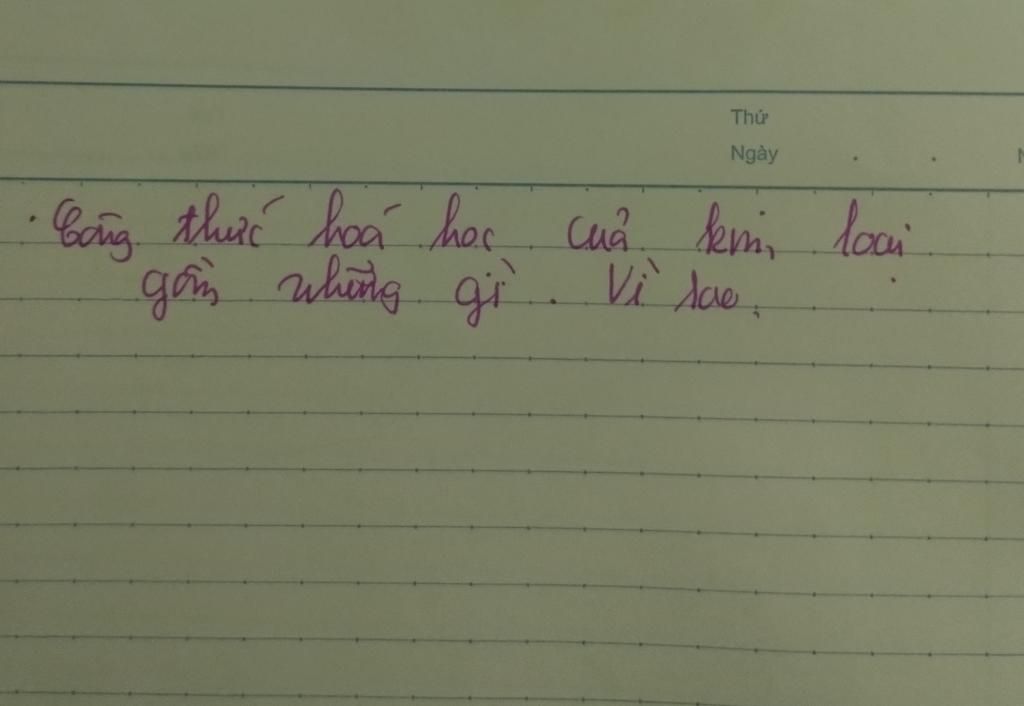 Thứ
Ngày
N
. Công thức hoá học của kim loại
gồm những gì . Vì sao.